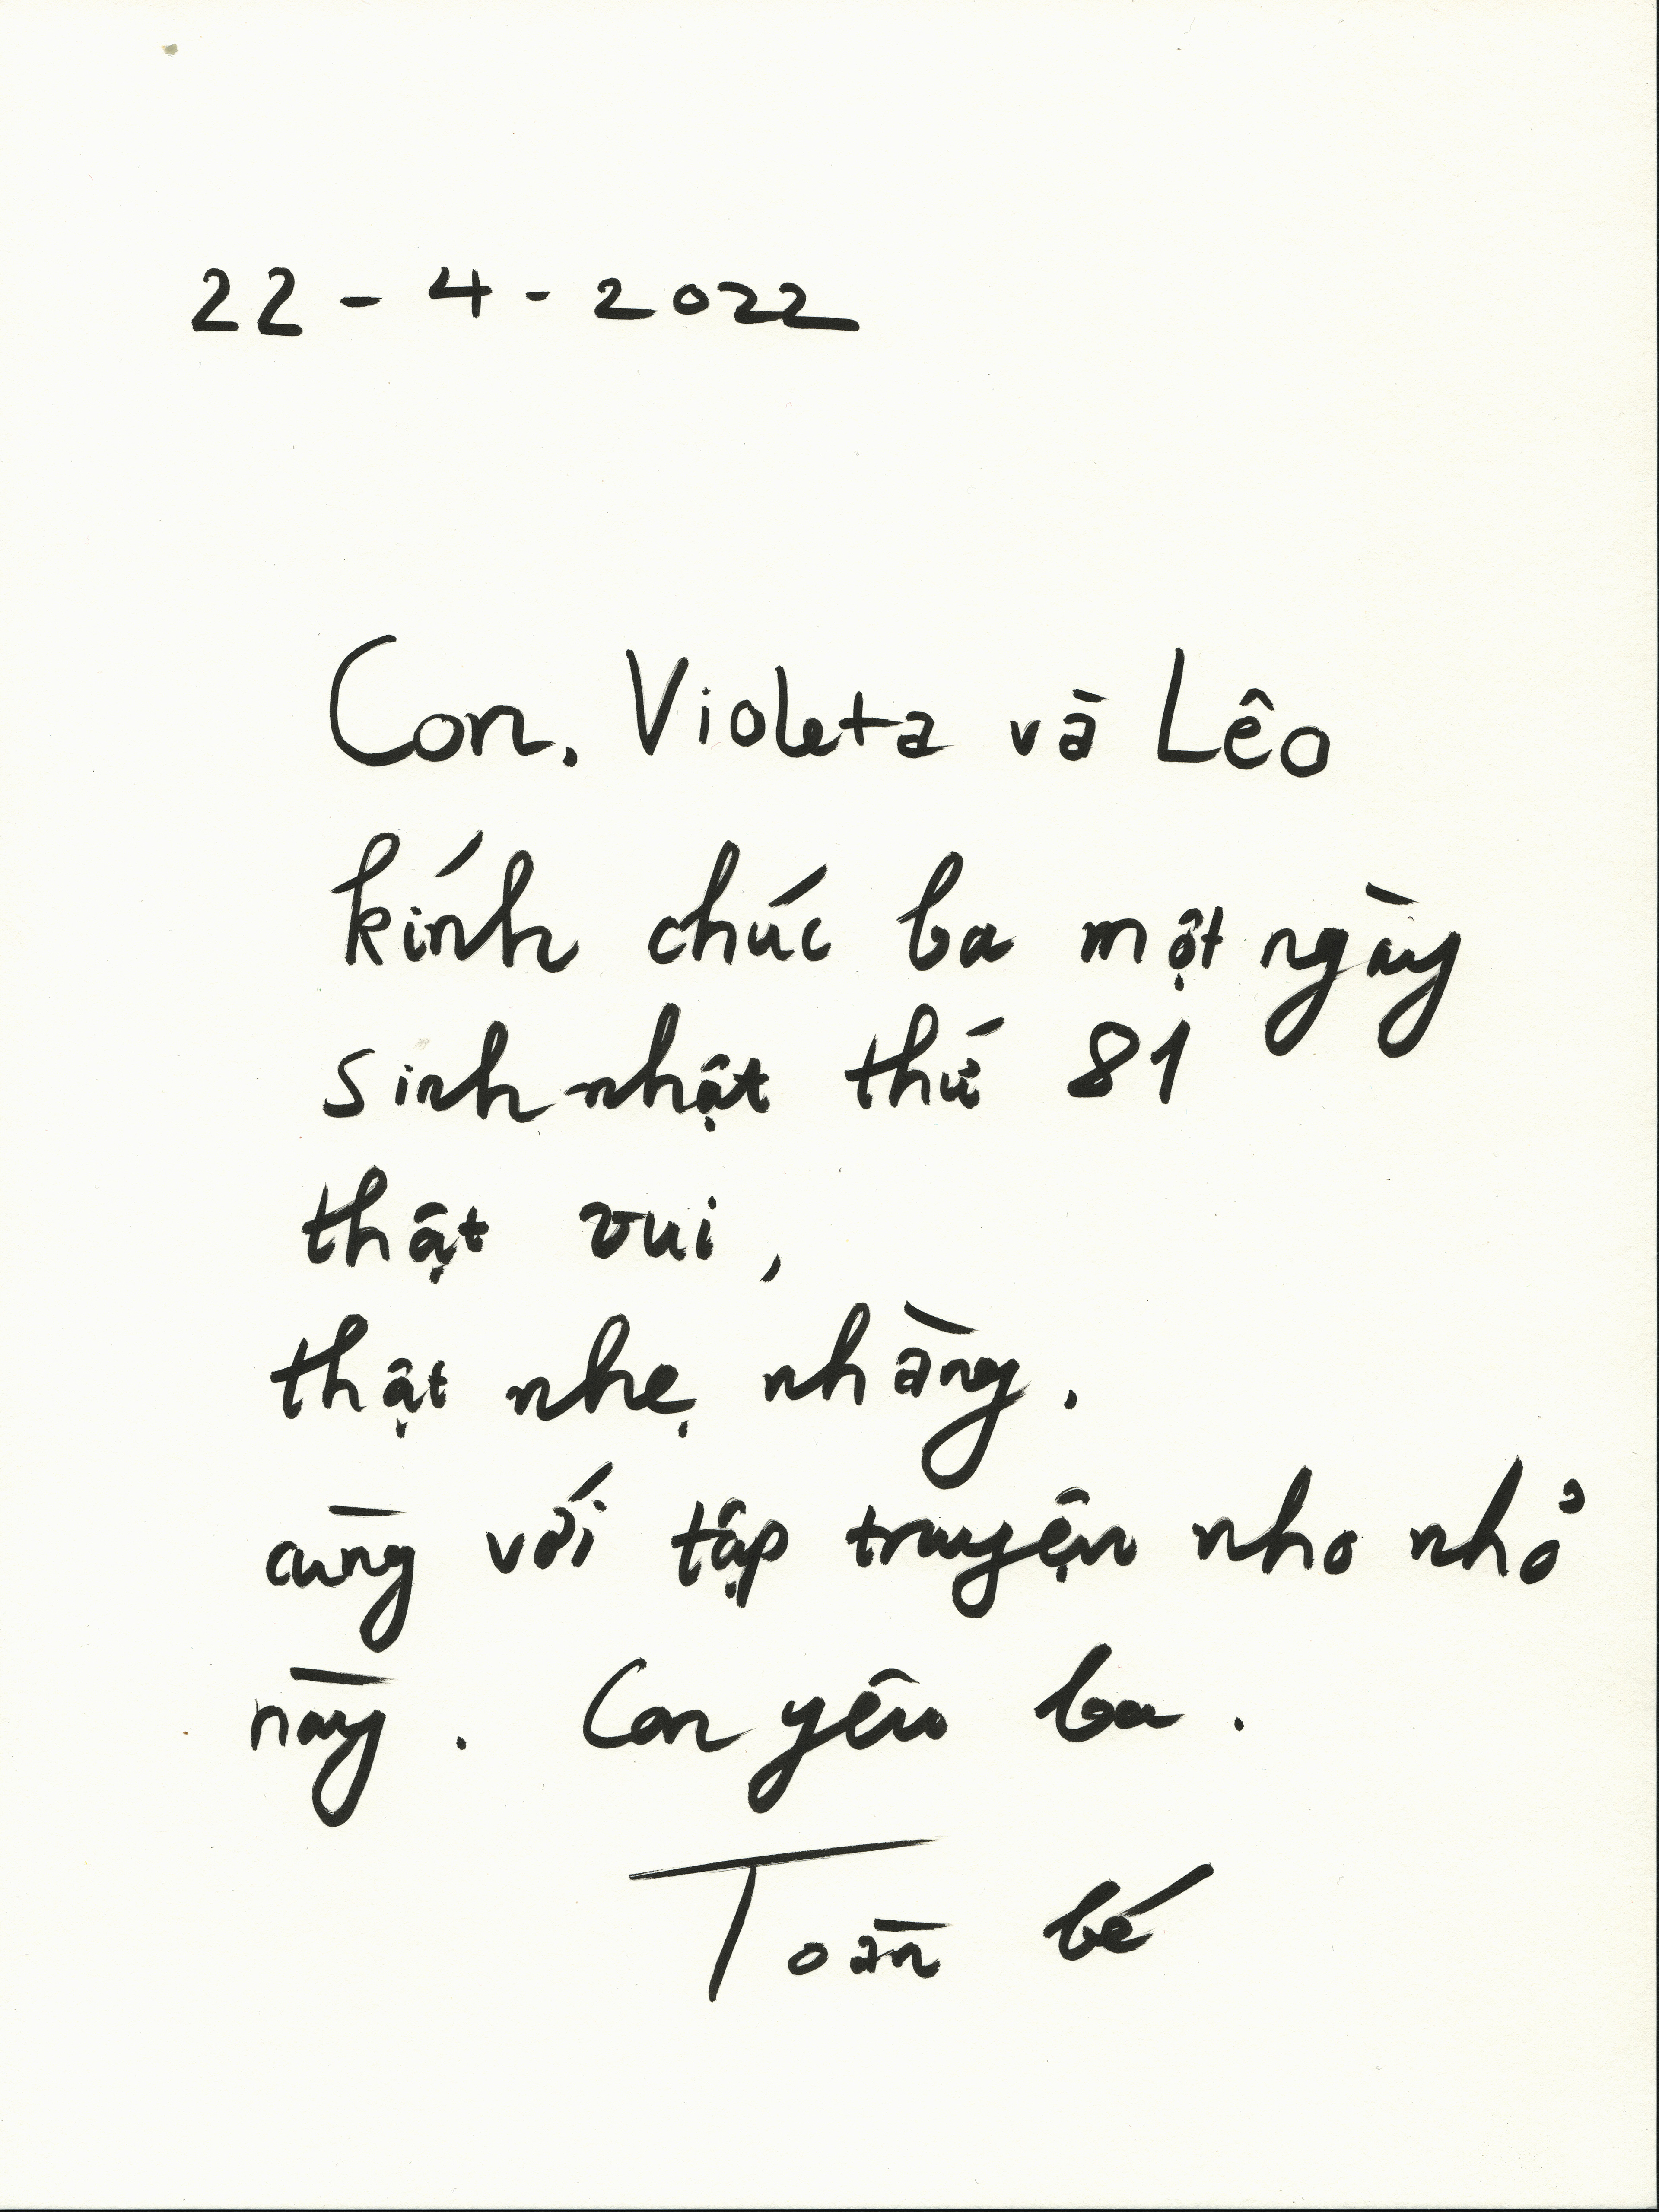 22 - 4 - 2022
Con, Violeta và Lêo
kính chúc ba một ngày
sinh nhật thứ 81
thật vui,
thật nhẹ nhàng,
cùng với tập truyện nho nhỏ
này. Con yêu ba.
Toàn bé